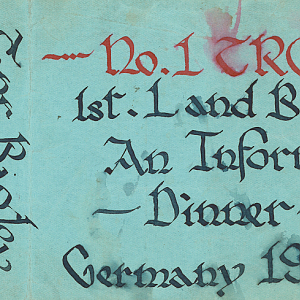 No. 1 TRO
1st. L and B
An Infor
- Dinner -
Germany 19